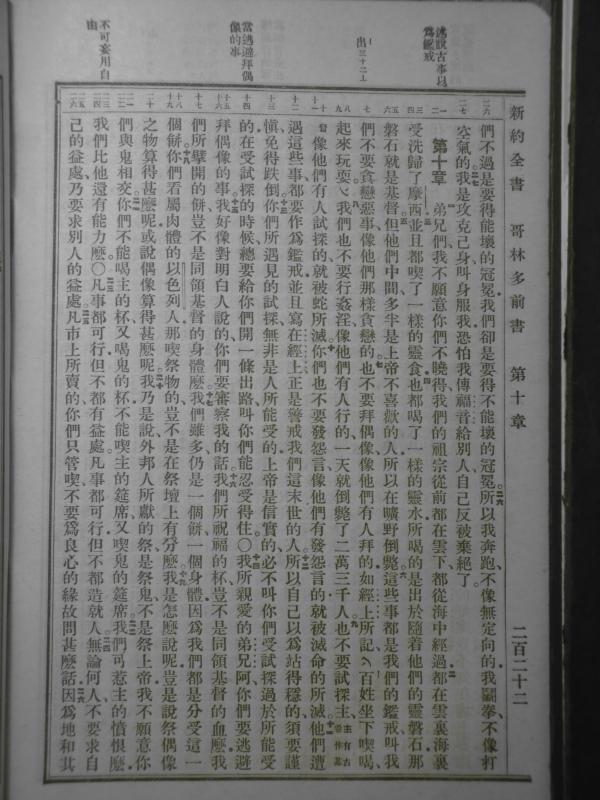 新約全書 哥林多前書 第十章 二百二十二
述說古事以
爲鑑戒
出三十二
當逃避拜偶
像的事
不可妄用自
由
們不過是要得能壞的冠冕我們卻是要得不能壞的冠冕所以我奔跑不像無定向的我鬬拳不像打
空氣的我是攻克己身叫身服我恐怕我傳福音給別人自己反被棄絕了
第十章 弟兄們我不願意你們不曉得我們的祖宗從前都在雲下都從海中經過都在雲裏海裏
受洗歸了摩西並且都喫了一樣的靈食也都喝了一樣的靈水所喝的是出於隨着他們的靈磐石那
磐石就是基督但他們中間多半是上帝不喜歡的人所以在曠野倒斃這些事都是我們的鑑戒叫我
們不要貪戀惡事像他們那樣貪戀的也不要拜偶像像他們有人拜的如經上所記百姓坐下喫喝
起來玩耍我們也不要行姦淫像他們有人行的一天就倒斃了二萬三千人也不要試探主主有古
督像他們有人試探的就被蛇所滅你們也不要發怨言像他們有發怨言的就被滅命的所滅他們遭
遇這些事都要作爲鑑戒並且寫在經上正是警戒我們這末世的人所以自己以爲站得穩的須要謹
愼免得跌倒你們所遇見的試探無非是人所能受的上帝是信實的必不叫你們受試探過於所能受
的在受試探的時候總要給你們開一條出路叫你們能忍受得住〇我所親愛的弟兄阿你們要逃避
拜偶像的事我好像對明白人說的你們要審察我的話我們所祝福的杯豈不是同領基督的血麼我
們所擘開的餅豈不是同領基督的身體麼我們雖多仍是一個餅一個身體因爲我們都是分受這一
個餅你們看屬肉體的以色列人那喫祭物的豈不是在祭壇上有分麼我是怎麼說呢豈是說祭偶像
之物算得甚麼呢或說偶像算得甚麼呢我乃是說外邦人所獻的祭是祭鬼不是祭上帝我不願意你
們與鬼相交你們不能喝主的杯又喝鬼的杯不能喫主的筵席又喫鬼的筵席我們可惹主的憤恨麼
我們比他還有能力麼〇凡事都可行但不都有益處凡事都可行但不都造就人無論何人不要求自
己的益處乃要求別人的益處凡市上所賣的你們只管喫不要爲良心的緣故問甚麼話因爲地和其